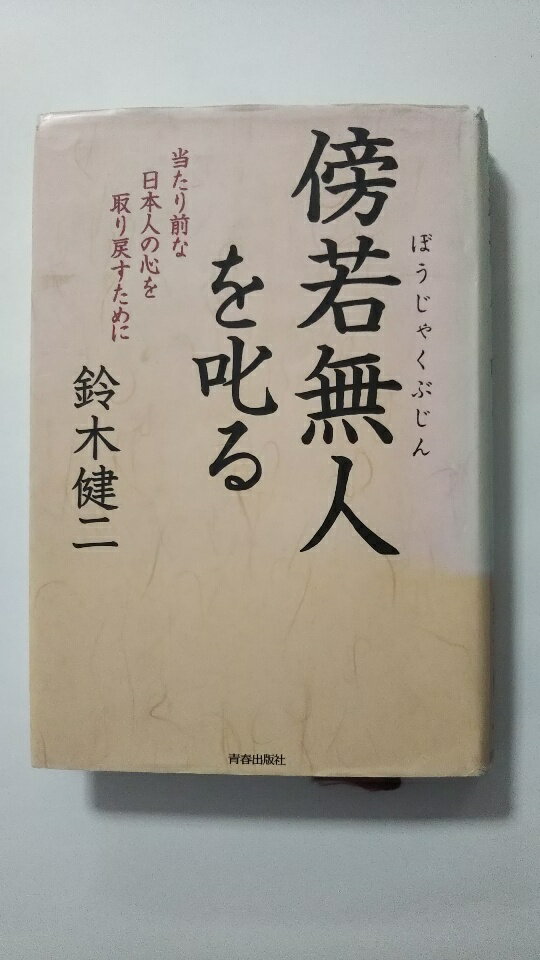 ぼうじゃくぶじん
傍若無人
を叱る
当たり前な
日本人の心を
取り戻すために
鈴木健二
青春出版社